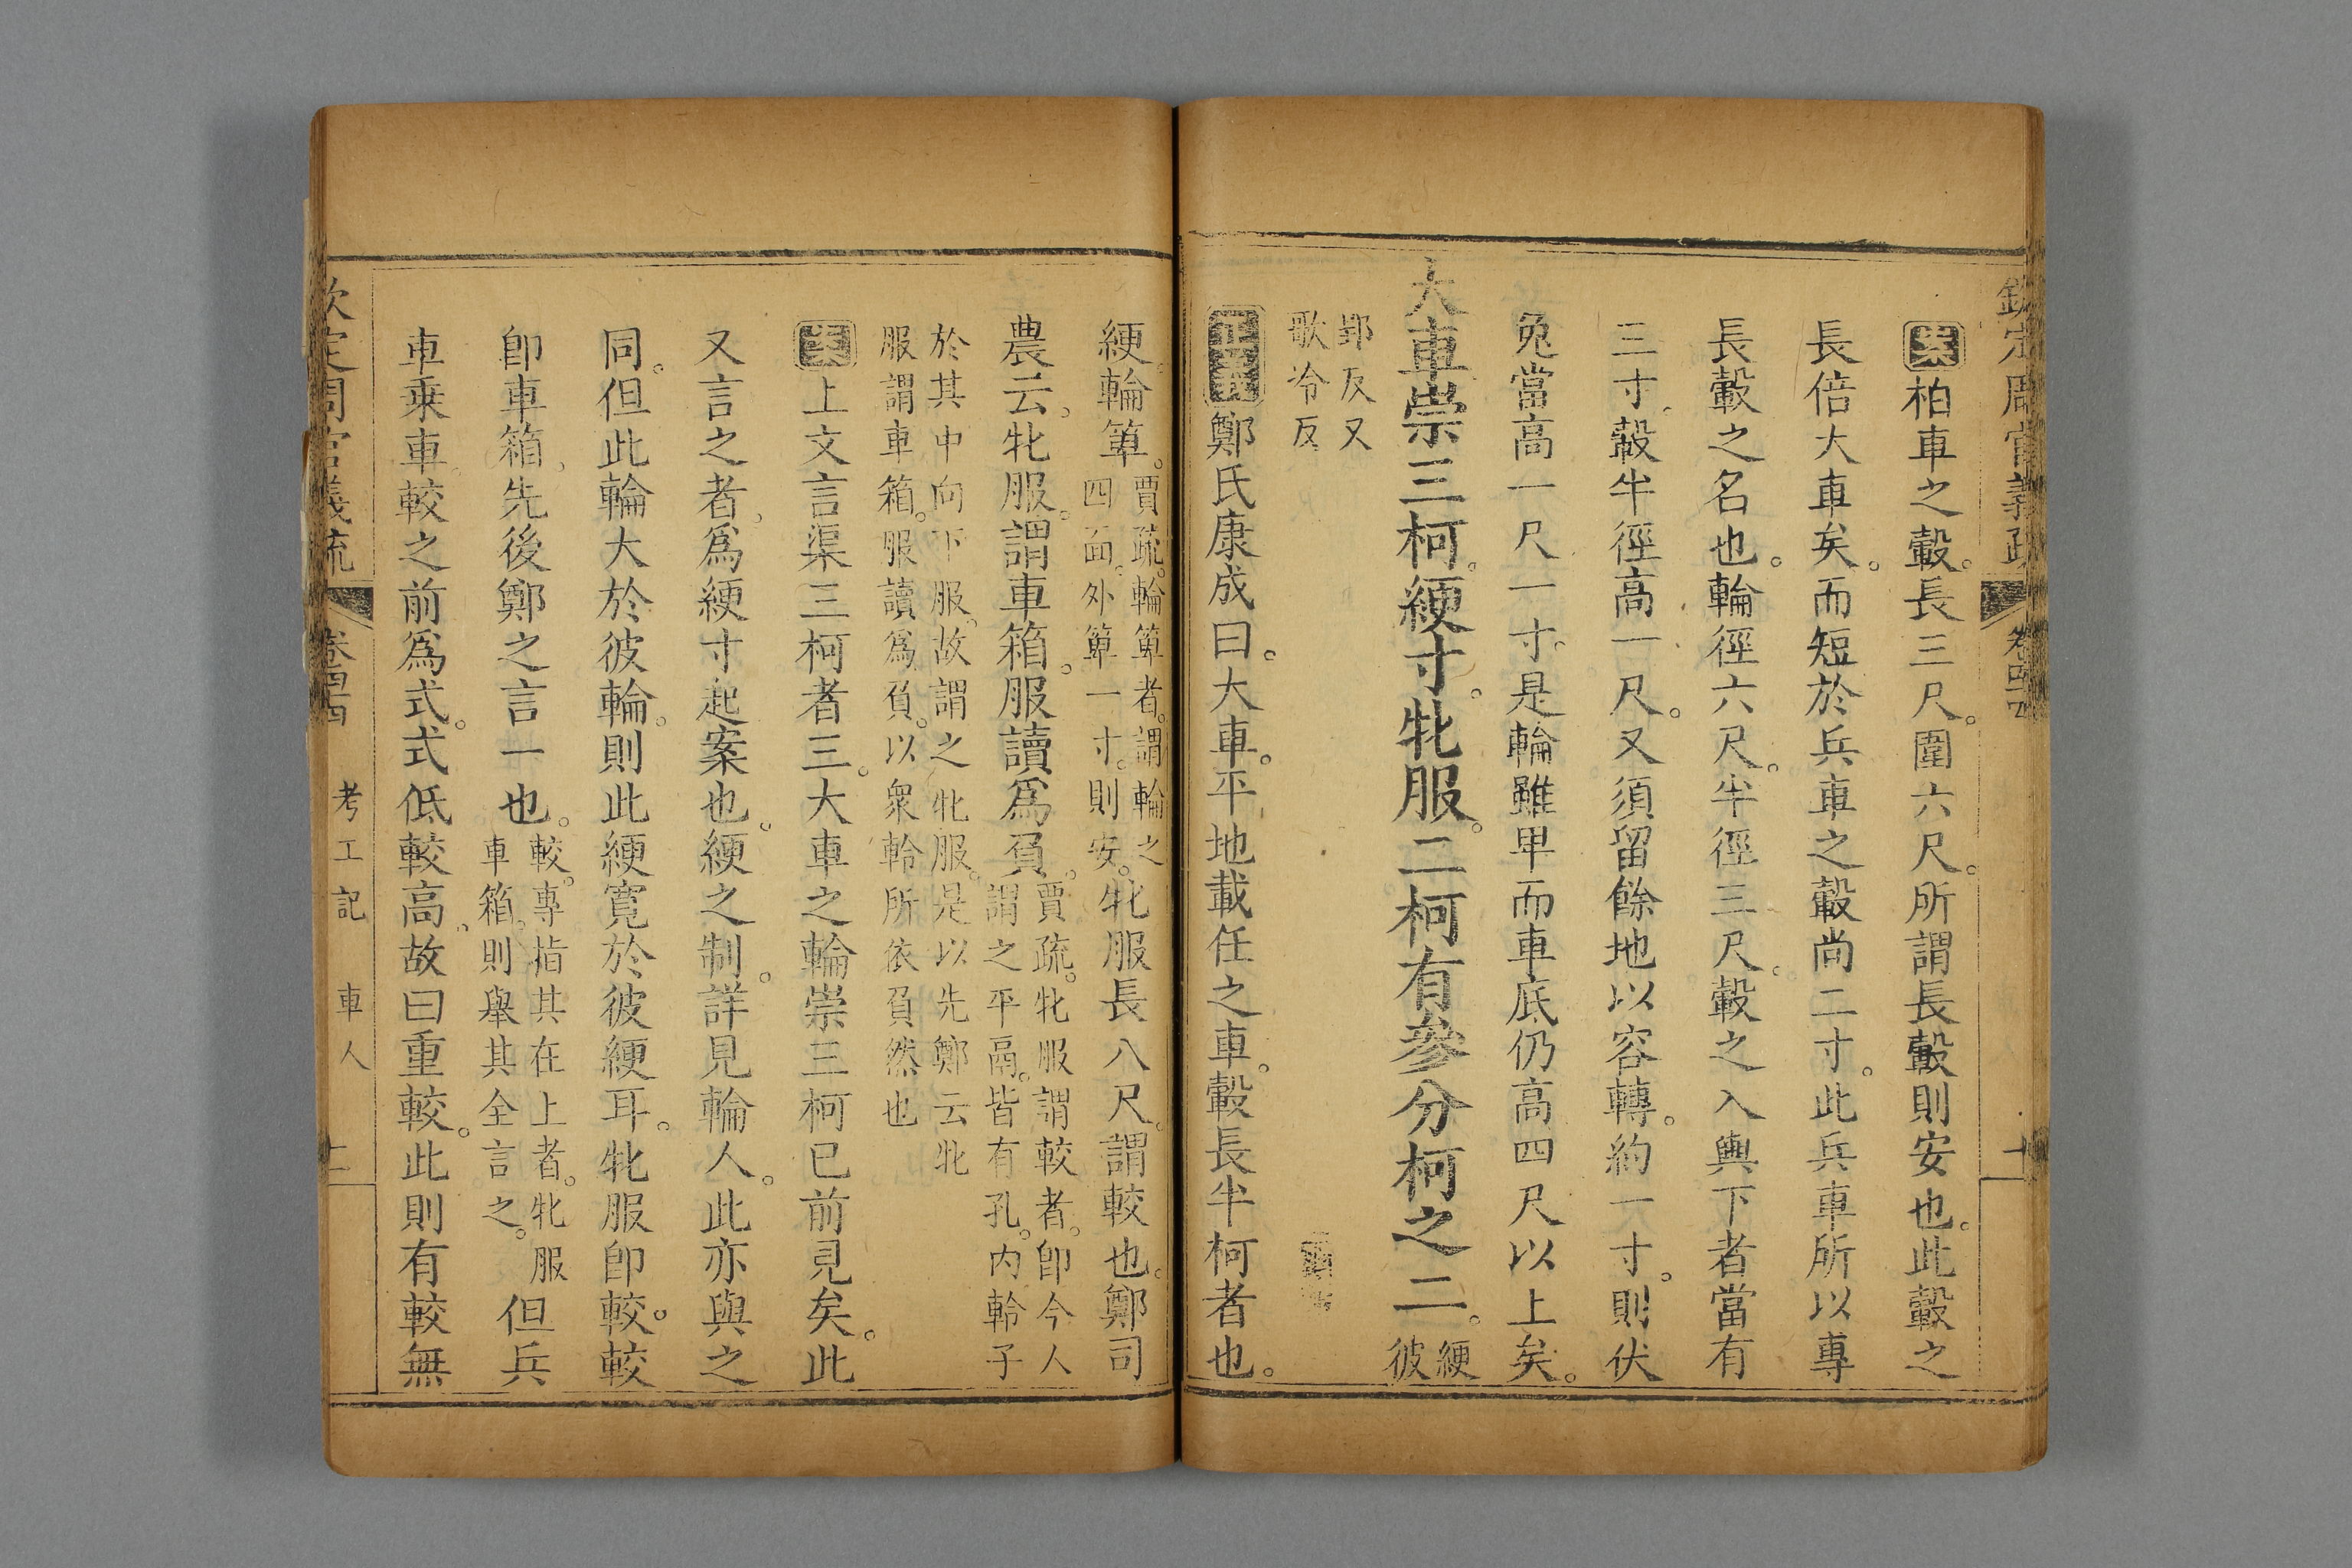 欽定周官義疏 卷四十四 十一
案柏車之轂。長三尺。圍六尺。所謂長轂則安也。此轂之
長倍大車矣。而短於兵車之轂尚二寸。此兵車所以專
長轂之名也。輪徑六尺。半徑三尺。轂之入輿下者當有
三寸。轂半徑高一尺。又須留餘地以容轉。約一寸。則伏
兔當高一尺一寸。是輪雖卑而車底仍高四尺以上矣。
大車崇三柯。綆寸。牝服。二柯有參分柯之二。綆
彼
郢反又
歌冷反
正義鄭氏康成曰。大車。平地載任之車。轂長半柯者也。
綆。輪箄。賈疏。輪箄者。謂輪之
四面。外箄一寸。則安。牝服長八尺。謂較也。鄭司
農云。牝服。謂車箱。服讀爲負。賈疏。牝服謂較者。卽今人
謂之平鬲。皆有孔。内軨子
於其中向下服。故謂之牝服。是以先鄭云牝
服謂車箱。服讀爲負。以衆軨所依負然也
案上文言渠三柯者三。大車之輪崇三柯已前見矣。此
又言之者。爲綆寸起案也。綆之制。詳見輪人。此亦與之
同。但此輪大於彼輪。則此綆寬於彼綆耳。牝服卽較。較
卽車箱。先後鄭之言一也。較。專指其在上者。牝服
車箱。則舉其全言之。但兵
車乘車。較之前爲式。式低較高。故曰重較。此則有較無
欽定周官義疏 卷四十四 考工記 車人 十二